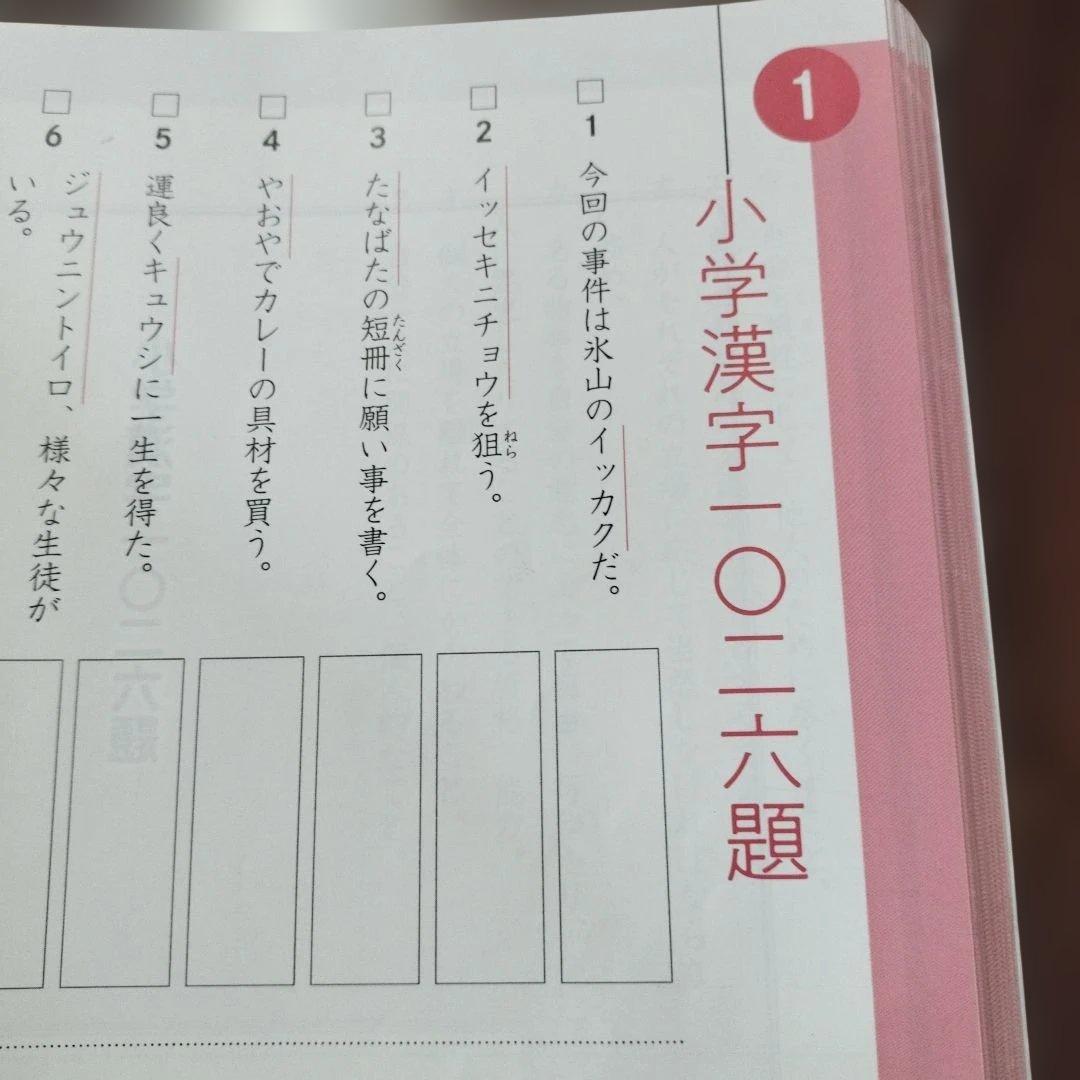 1
小学漢字一〇二六題
1
今回の事件は氷山のイッカクだ。
2
イッセキニチョウを狙う。
ねら
3
たなばたの短冊に願い事を書く。
たんざく
4
やおやでカレーの具材を買う。
5
運良くキュウシに一生を得た。
6
ジュウニントイロ、様々な生徒が
いる。